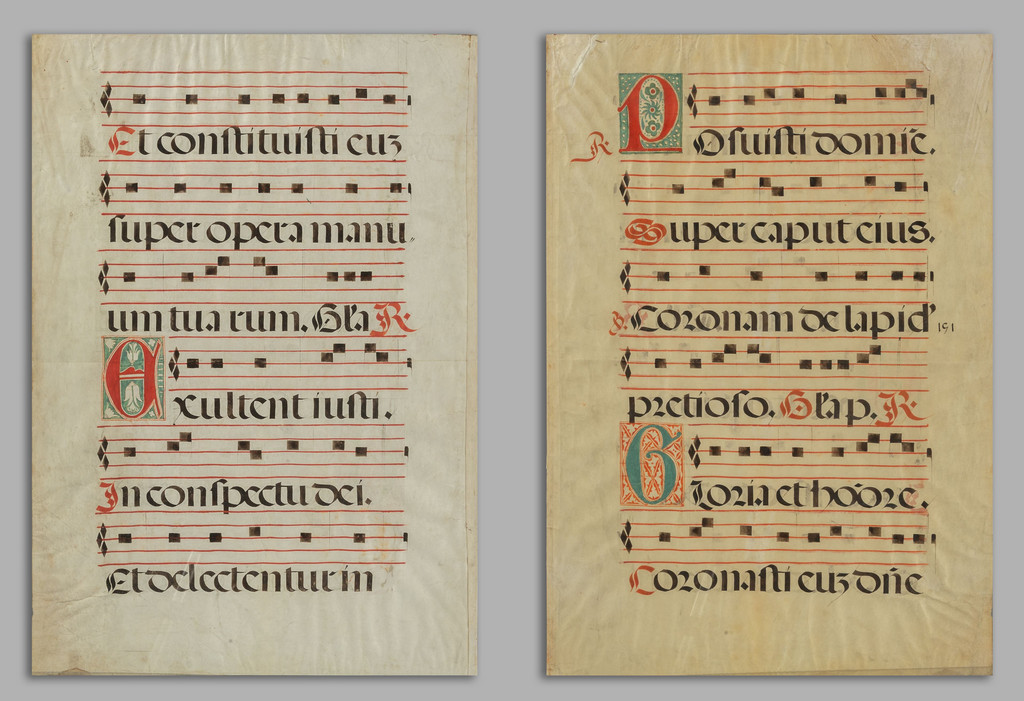 Et constituisti euz
super opera manu
um tua rum. Gl'a R.
Exultent iusti.
In conspectu dei.
Et delectentur in
R. Posuisti domie.
Super caput eius.
Coronam de lapid'
pretioso. Gl'a p. R.
Gloria et hoore.
Coronasti euz dn̄e